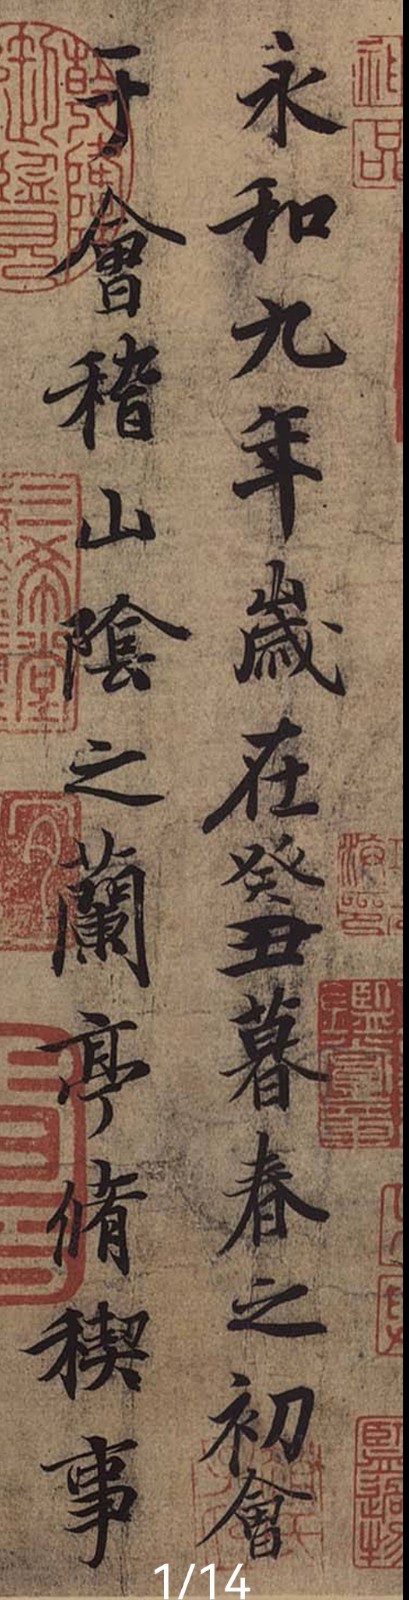 永和九年歲在癸丑暮春之初會
于會稽山陰之蘭亭脩稧事
三希堂
1/14